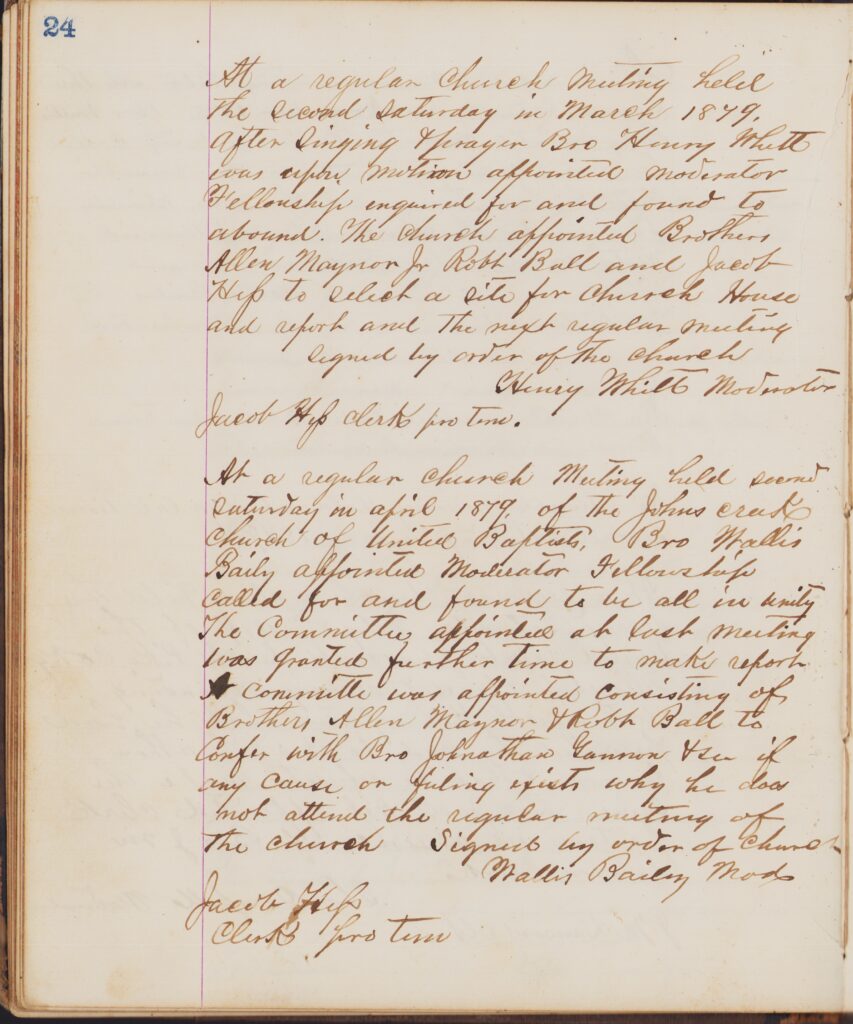 24
At a regular Church Meeting held
the second saturday in March 1879.
After Singing & prayer Bro Henry Whitt
was upon motion appointed moderator
Fellowship enquired for and found to
abound. The church appointed Brothers
Allen Maynor Jr Robt Ball and Jacob
Hess to select a site for Church House
and report and the next regular meeting
signed by order of the church
Henry Whitt Moderator
Jacob Hess clerk pro tem.
At a regular church Meeting held second
saturday in april 1879 of the Johns creek
church of United Baptists, Bro Wallis
Baily appointed Moderator Fellowship
called for and found to be all in unity
The Committee appointed at last meeting
was granted further time to make report
A committe was appointed consisting of
Brothers Allen Maynor & Robt Ball to
Confer with Bro Johnathan Gannon & see if
any cause or filing exists why he does
not attend the regular meeting of
the church Signed by order of Church
Wallis Bailey Mod
Jacob Hess
Clerk pro tem